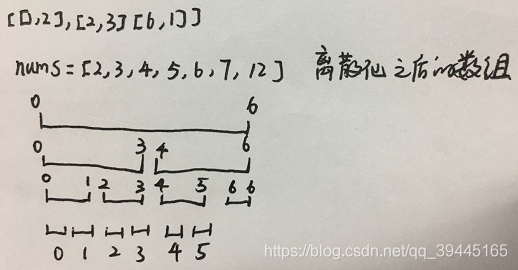 [[1,2],[2,3][6,1]]
nums=[2,3,4,5,6,7,12] 离散化之后的数组
0 6
0 3 4 6
0 1 2 3 4 5 6 6
0 1 2 3 4 5
https://blog.csdn.net/qq_39445165